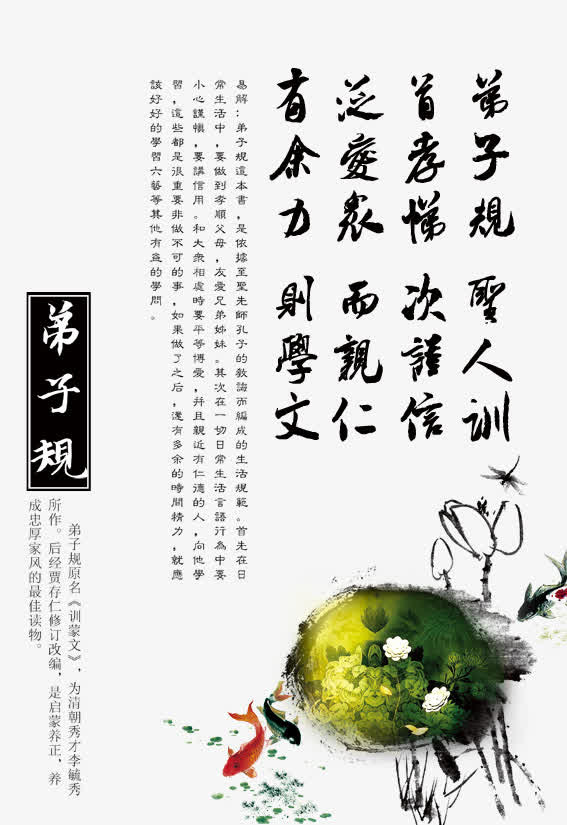 弟子規 聖人訓
首孝悌 次謹信
泛愛衆 而親仁
有余力 則學文
易解：弟子規這本書，是依據至聖先師孔子的教誨而編成的生活規範。首先在日
常生活中，要做到孝順父母，友愛兄弟姊妹。其次在一切日常生活言語行為中要
小心謹慎，要講信用。和大衆相處時要平等博愛，并且親近有仁德的人，向他學
習，這些都是很重要非做不可的事，如果做了之后，還有多余的時間精力，就應
該好好的學習六藝等其他有益的學問。
弟子規
弟子规原名《训蒙文》，为清朝秀才李毓秀
所作。后经贾存仁修订改编，是启蒙养正，养
成忠厚家风的最佳读物。